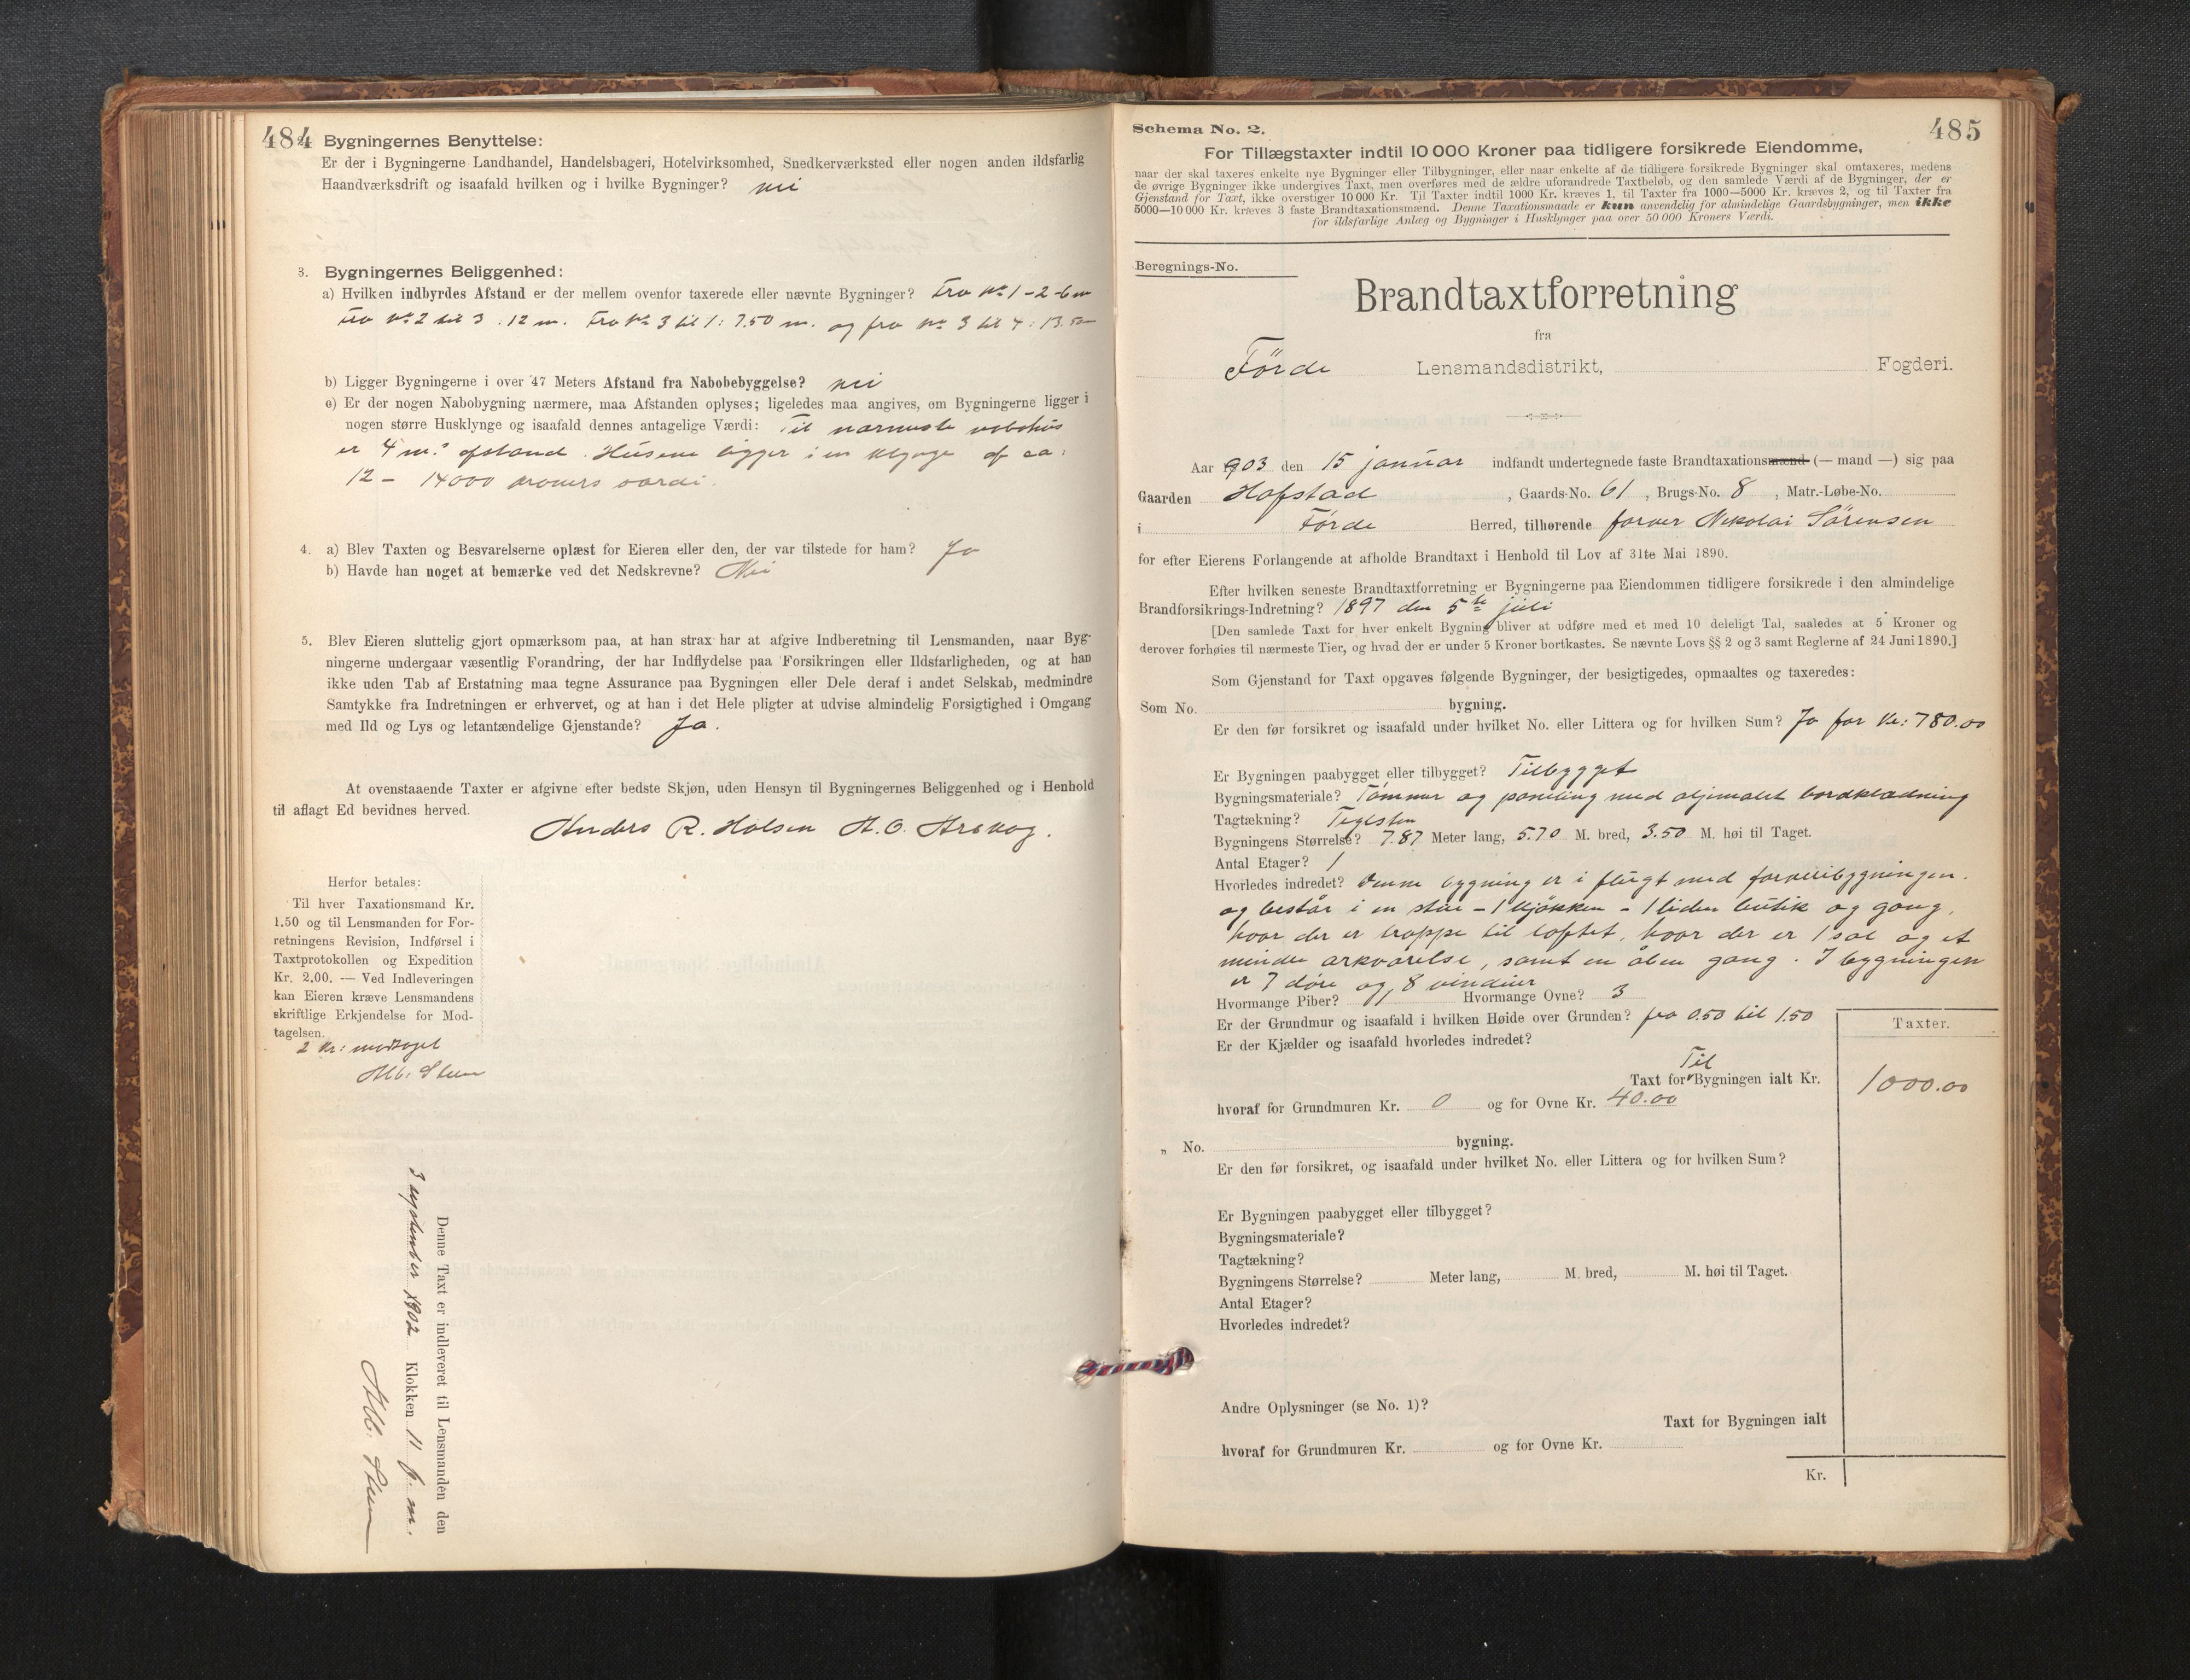 484
Bygningernes Benyttelse:
Er der i Bygningerne Landhandel, Handelsbageri, Hotelvirksomhed, Snedkerværksted eller nogen anden ildsfarlig
Haandværksdrift og isaafald hvilken og i hvilke Bygninger? nei
3. Bygningernes Beliggenhed:
a) Hvilken indbyrdes Afstand er der mellem ovenfor taxerede eller nævnte Bygninger? Fra No 1 - 2 - 6 m
Fra No 2 til 3 : 12 m. Fra No 3 til 1 : 7.50 m. og fra No 3 til 4 : 13.50 m
b) Ligger Bygningerne i over 47 Meters Afstand fra Nabobebyggelse? nei
c) Er der nogen Nabobygning nærmere, maa Afstanden oplyses; ligeledes maa angives, om Bygningerne ligger i
nogen større Husklynge og isaafald dennes antagelige Værdi: Til nærmeste nabohus
er 4 m.s afstand. Husene ligger i en klynge af ca.
12 - 14000 kroners værdi.
4. a) Blev Taxten og Besvarelserne oplæst for Eieren eller den, der var tilstede for ham? Ja
b) Havde han noget at bemærke ved det Nedskrevne? Nei
5. Blev Eieren sluttelig gjort opmærksom paa, at han strax har at afgive Indberetning til Lensmanden, naar Byg-
ningerne undergaar væsentlig Forandring, der har Indflydelse paa Forsikringen eller Ildsfarligheden, og at han
ikke uden Tab af Erstatning maa tegne Assurance paa Bygningen eller Dele deraf i andet Selskab, medmindre
Samtykke fra Indretningen er erhvervet, og at han i det Hele pligter at udvise almindelig Forsigtighed i Omgang
med Ild og Lys og letantændelige Gjenstande? Ja.
At ovenstaaende Taxter er afgivne efter bedste Skjøn, uden Hensyn til Bygningernes Beliggenhed og i Henhold
til aflagt Ed bevidnes herved.
Anders R. Halsen A. O.
Herfor betales:
Til hver Taxationsmand Kr.
1.50 og til Lensmanden for For-
retningens Revision, Indførsel i
Taxtprotokollen og Expedition
Kr. 2.00. — Ved Indleveringen
kan Eieren kræve Lensmandens
skriftlige Erkjendelse for Mod-
tagelsen.
2 Kr: modtaget
Alb. Steen
Denne Taxt er indleveret til Lensmanden den
3 september 1902 Klokken 11 f. m.
Alb. Steen
485
Schema No. 2.
For Tillægstaxter indtil 10 000 Kroner paa tidligere forsikrede Eiendomme,
naar der skal taxeres enkelte nye Bygninger eller Tilbygninger, eller naar enkelte af de tidligere forsikrede Bygninger skal omtaxeres, medens
de øvrige Bygninger ikke undergives Taxt, men overføres med de ældre uforandrede Taxtbeløb, og den samlede Værdi af de Bygninger, der er
Gjenstand for Taxt, ikke overstiger 10 000 Kr. Til Taxter indtil 1000 Kr. kræves 1, til Taxter fra 1000—5000 Kr. kræves 2, og til Taxter fra
5000—10 000 Kr. kræves 3 faste Brandtaxationsmænd. Denne Taxationsmaade er kun anvendelig for almindelige Gaardsbygninger, men ikke
for ildsfarlige Anlæg og Bygninger i Husklynger paa over 50 000 Kroners Værdi.
Beregnings-No.
Brandtaxtforretning
fra
Förde Lensmandsdistrikt, Fogderi.
Aar 903 den 15 januar indfandt undertegnede faste Brandtaxationsmænd (— mand —) sig paa
Gaarden Hafstad, Gaards-No. 61, Brugs-No. 8, Matr.-Løbe-No.
i Førde Herred, tilhørende farver Nikolai Sörensen
for efter Eierens Forlangende at afholde Brandtaxt i Henhold til Lov af 31te Mai 1890.
Efter hvilken seneste Brandtaxtforretning er Bygningerne paa Eiendommen tidligere forsikrede i den almindelige
Brandforsikrings-Indretning? 1897 den 5te juli
[Den samlede Taxt for hver enkelt Bygning bliver at udføre med et med 10 deleligt Tal, saaledes at 5 Kroner og
derover forhøies til nærmeste Tier, og hvad der er under 5 Kroner bortkastes. Se nævnte Lovs §§ 2 og 3 samt Reglerne af 24 Juni 1890.]
Som Gjenstand for Taxt opgaves følgende Bygninger, der besigtigedes, opmaaltes og taxeredes:
Som No. bygning.
Er den før forsikret og isaafald under hvilket No. eller Littera og for hvilken Sum? Ja for Kr: 780.00
Er Bygningen paabygget eller tilbygget? Tilbygget
Bygningsmateriale? Tömmer og paneling med oljemalet bordklædning
Tagtækning? Teglsten
Bygningens Størrelse? 7.87 Meter lang, 5.70 M. bred, 3.50 M. høi til Taget.
Antal Etager? 1
Hvorledes indredet? Denne bygning er i flugt med farveribygningen.
og består i en stue - 1 kjøkken - 1 liden butik og gang,
hvor der er trappe til loftet, hvor der er 1 sal og et
mindre arkværelse, samt en åben gang. I bygningen
er 7 döre og 8 vinduer
Hvormange Piber? 1 Hvormange Ovne? 3
Er der Grundmur og isaafald i hvilken Høide over Grunden? fra 0.50 til 1.50
Er der Kjælder og isaafald hvorledes indredet?
Taxter.
Til
Taxt for Bygningen ialt Kr. 1000.00
hvoraf for Grundmuren Kr. 0 og for Ovne Kr. 40.00
„ No. bygning.
Er den før forsikret, og isaafald under hvilket No. eller Littera og for hvilken Sum?
Er Bygningen paabygget eller tilbygget?
Bygningsmateriale?
Tagtækning?
Bygningens Størrelse? Meter lang, M. bred, M. høi til Taget.
Antal Etager?
Hvorledes indredet?
Andre Oplysninger (se No. 1)?
Taxt for Bygningen ialt
hvoraf for Grundmuren Kr. og for Ovne Kr.
Kr.